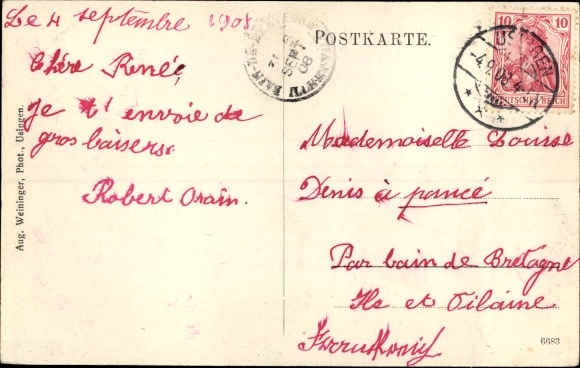 Le 4 septembre 1908
Chère Renée,
Je t'envoie de
gros baisers.
Robert Orain.
Aug. Weininger, Phot., Usingen.
POSTKARTE.
10 10
DEUTSCHES REICH
USINGEN
Mademoiselle Louise
Denis à pancé
Par bain de Bretagne
Ile et Vilaine
6683